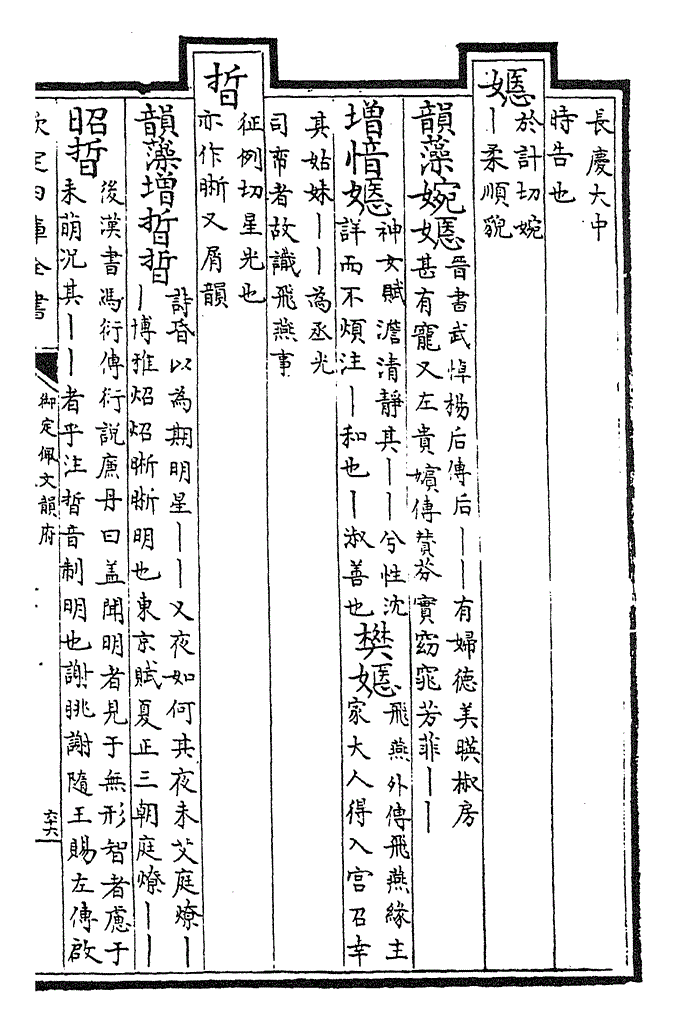 長慶大中
時告也
嫕
於計切婉
丨柔順貌
韻藻婉嫕
晉書武悼楊后傳后丨丨有婦德美暎椒房
又甚有寵又左貴嬪傳贊芬實窈窕芳菲丨丨
増愔嫕
神女賦澹清靜其丨丨兮性沈
詳而不煩注丨和也丨淑善也
樊嫕
飛燕外傳飛燕緣主
家大人得入宫召幸
其姑妹丨丨為丞光
司帟者故識飛燕事
晢
征例切星光也
亦作晣又屑韻
韻藻増晢晢
詩昏以為期明星丨丨又夜如何其夜未艾庭燎丨
丨博雅炤炤晣晣明也東京賦夏正三朝庭燎丨丨
昭晢
後漢書馮衍傳衍說廉丹曰盖聞明者見于無形智者慮于
未萌況其丨丨者乎注晢音制明也謝朓謝隨王賜左傳啟
欽定四庫全書
御定佩文韻府
六十六